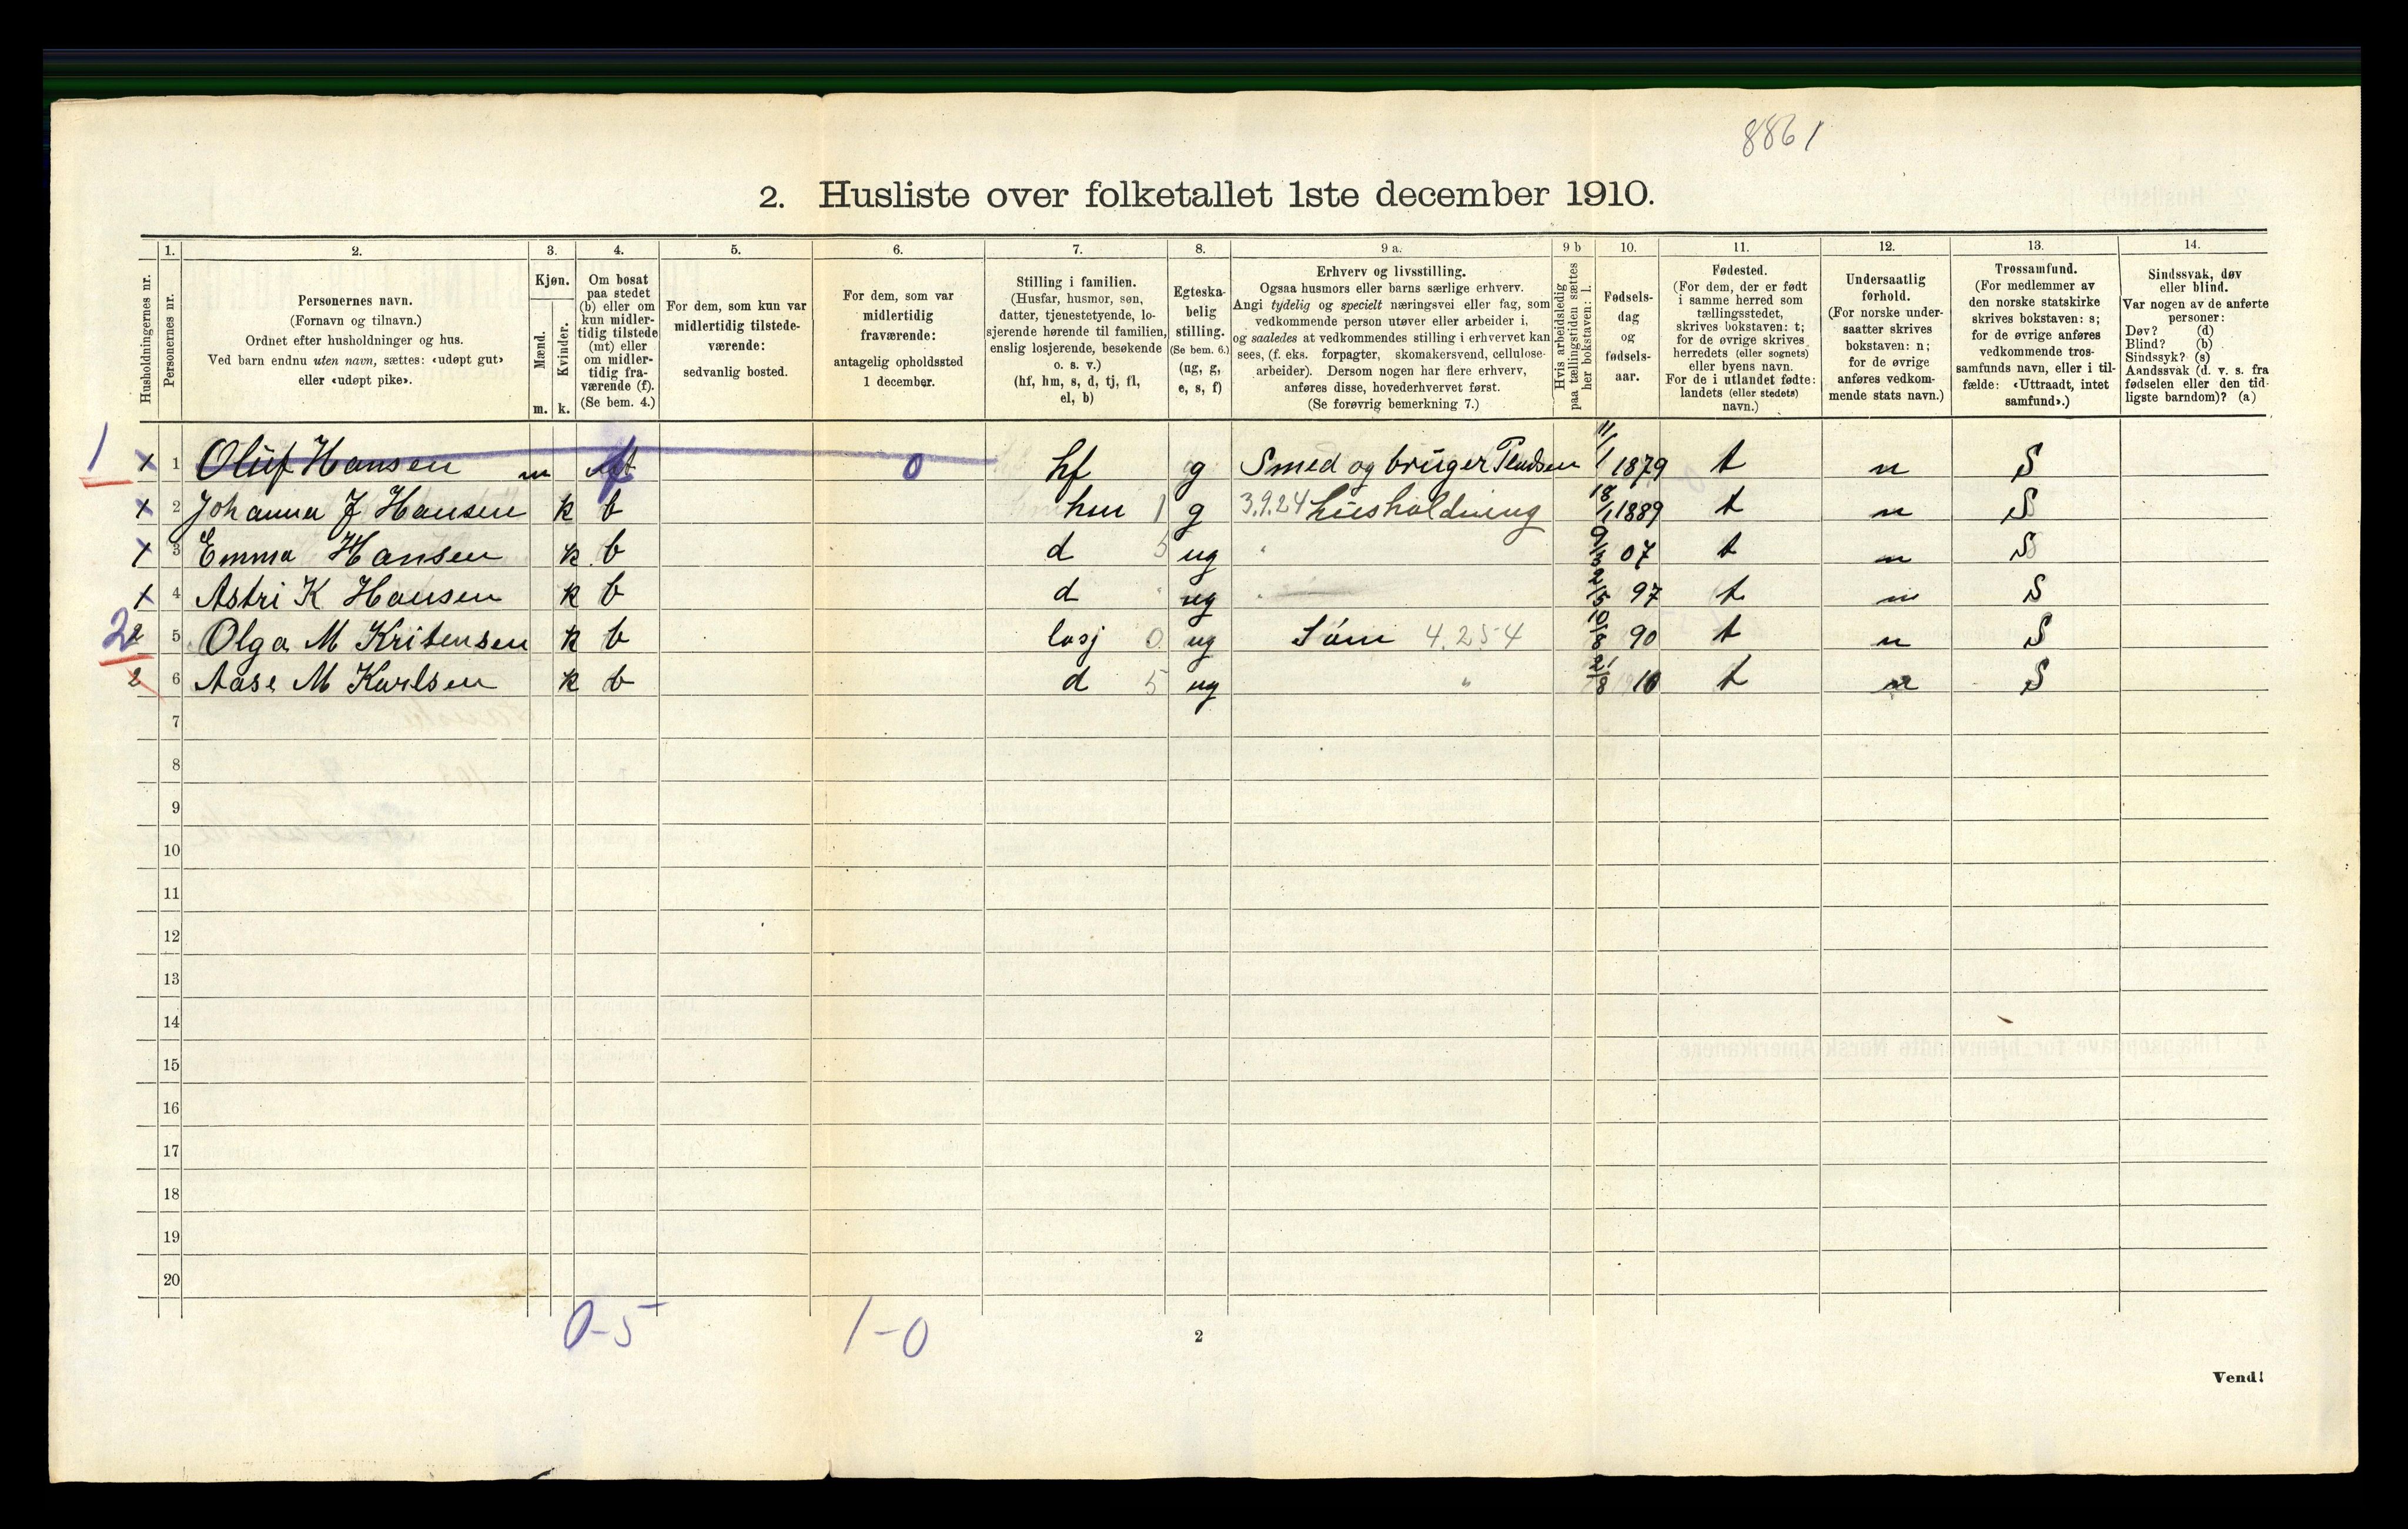 8861
2. Husliste over folketallet 1ste december 1910.
Husholdningernes nr.
1.
Personernes nr.
2.
Personernes navn.
(Fornavn og tilnavn.)
Ordnet efter husholdninger og hus.
Ved barn endnu uten navn, sættes: «udøpt gut»
eller «udøpt pike».
3.
Kjøn.
Mænd.
Kvinder.
m. k.
4.
Om bosat
paa stedet
(b) eller om
kun midler-
tidig tilstede
(mt) eller
om midler-
tidig fra-
værende (f).
(Se bem. 4.)
5.
For dem, som kun var
midlertidig tilstede-
værende:
sedvanlig bosted.
6.
For dem, som var
midlertidig
fraværende:
antagelig opholdssted
1 december.
7.
Stilling i familien.
(Husfar, husmor, søn,
datter, tjenestetyende, lo-
sjerende hørende til familien,
enslig losjerende, besøkende
o. s. v.)
(hf, hm, s, d, tj, fl,
el, b)
8.
Egteska-
belig
stilling.
(Se bem. 6.)
(ug, g,
e, s, f)
9 a.
Erhverv og livsstilling.
Ogsaa husmors eller barns særlige erhverv.
Angi tydelig og specielt næringsvei eller fag, som
vedkommende person utøver eller arbeider i,
og saaledes at vedkommendes stilling i erhvervet kan
sees, (f. eks. forpagter, skomakersvend, cellulose-
arbeider). Dersom nogen har flere erhverv,
anføres disse, hovederhvervet først.
(Se forøvrig bemerkning 7.)
9 b
Hvis arbeidsledig
paa tællingstiden sættes
her bokstaven: l.
10.
Fødsels-
dag
og
fødsels-
aar.
11.
Fødested.
(For dem, der er født
i samme herred som
tællingsstedet,
skrives bokstaven: t;
for de øvrige skrives
herredets (eller sognets)
eller byens navn.
For de i utlandet fødte:
landets (eller stedets)
navn.)
12.
Undersaatlig
forhold.
(For norske under-
saatter skrives
bokstaven: n;
for de øvrige
anføres vedkom-
mende stats navn.)
13.
Trossamfund.
(For medlemmer av
den norske statskirke
skrives bokstaven: s;
for de øvrige anføres
vedkommende tros-
samfunds navn, eller i til-
fælde: «Uttraadt, intet
samfund».)
14.
Sindssvak, døv
eller blind.
Var nogen av de anførte
personer:
Døv? (d)
Blind? (b)
Sindssyk? (s)
Aandssvak (d. v. s. fra
fødselen eller den tid-
ligste barndom)? (a)
1 x 1 Oluf Hansen m 0 hf g Smed og bruger Pladsen 11/1 1879 t n S
x 2 Johanna J Hansen k b hm 1 g 3.9.24 husholdning 18/1 1889 t n S
x 3 Emma Hansen k b d 5 ug " 07 t n S
x 4 Astri K Hansen k b d " ug " 97 t n S
2 2 5 Olga M Kritensen k b losj 0 ug Söm 4.254 10/8 90 t n S
2 6 Aase M Karlsen k b d 5 ug " 10 t n S
7
8
9
10
11
12
13
14
15
16
17
18
19
20
0-5 1-0
2
Vend!